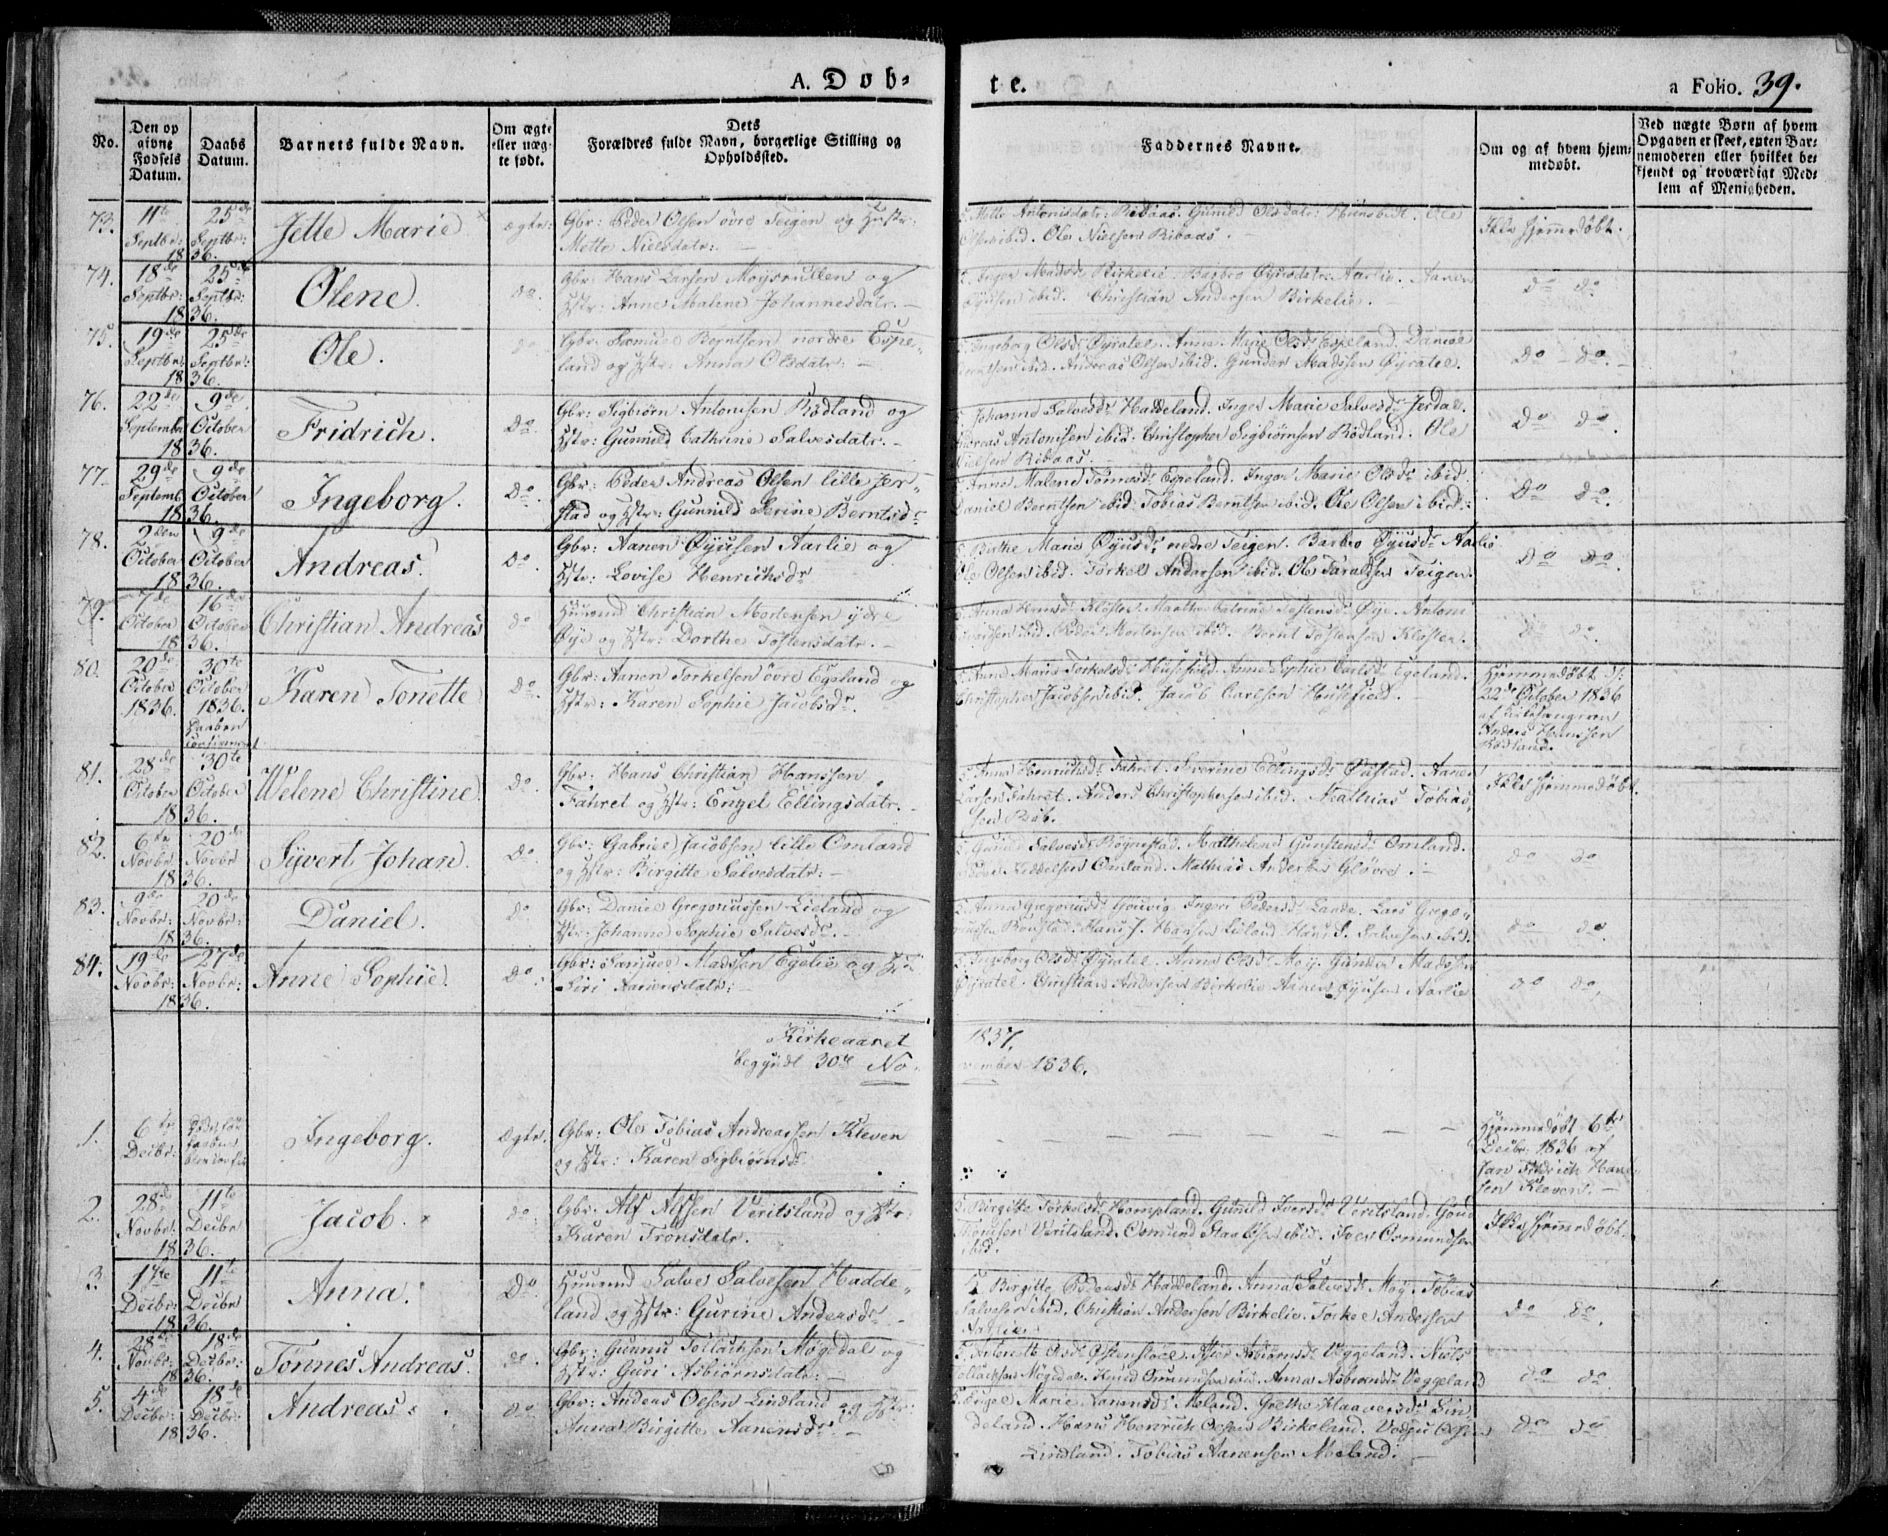 A. Døb-
te.
a Folio. 39.
No.
Den op
givne
Fødsels
Datum.
Daabs
Datum.
Barnets fulde Navn.
Om ægte
eller uæg-
te født.
Dets
Forældres fulde Navn, borgerlige Stilling og
Opholdssted.
Faddernes Navne.
Om og af hvem hjem-
medøbt.
Ved uægte Børn af hvem
Opgaven er skeet, enten Bar-
nemoderen eller hvilket be-
kjendt og troværdigt Med-
lem af Menigheden.
73. 11te Septbr: 1836. 25de Septbr: Jette Marie ægte: Gbr: Peder Olsen øvre Teigen og Hustr:
Mette Nielsdatr: —
Mette Antonisdatr: Risaas. Gunild Olsdatr: ibid. Ole
Olsen ibid. Ole Nielsen Risaas. Ikke hjemmedøbt.
74. 18de Septbr: 1836. 25de Septbr: Olene. Do. Gbr: Hans Larsen Moysrullen og
Hstr: Anne Malene Johannesdatr: —
Inger Madsd: Birkelie. Barbro Øyusdatr: Aarlie. Aanen
Øyusen ibid. Christian Andersen Birkelie. — Do Do
75. 19de Septbr: 1836. 25de Septbr: Ole. Do Gbr: Samuel Berntsen nordre Espe-
land og Hstr: Anna Olsdatr: —
Ingeborg Olsd: Øyratel. Anne Marie Olsd: Espeland. Daniel
Berntsen ibid. Andreas Olsen ibid. Gunder Madssen Øyratel. Do — Do. —
76. 22de September 1836. 9de October Fridrich. Do. Gbr: Sigbiørn Antonisen Rødland og
Hstr: Gunnild Cathrine Salvesdatr. —
Johanne Salvesd: Haddeland. Inger Marie Salvesd: Jerdal.
Andreas Antonisen ibid. Christopher Sigbiørnsen Rødland. Ole
Nielsen Risaas. Do Do.
77. 29de Septemb. 1836. 9de October Ingeborg. Do. Gbr: Peder Andreas Olsen lille Jer-
stad og Hstr: Gunnild Serine Berntsd:
Anne Malene Tønnesd: Espeland. Inger Marie Olsd: ibid.
Daniel Berntsen ibid. Tobias Berntsen ibid. Ole Olsen ibid. Do Do.
78. 2den October 1836. 9de October Andreas. Do. Gbr: Aanen Øyusen Aarlie og
Hstr: Lovise Henrichsdr
Birthe Marie Øyusd: nedre Teigen. Barbro Øyusd: Aarlie
Ole Olsen ibid. Torkel Andersen ibid. Ole Taraldsen Teigen. Do Do.
79. 7de Octobr 1836. 16de October Christian Andreas do Huusmd Christian Mortensen ydre
Øye og Hstr: Dorthe Tostensdatr. —
Anna Kloster. Marthe Catrine Tostensd: Øye. Antoni
ibid. Peder Mortensen ibid. Bernt Tostensen Kloster. Do do.
80. 20de October 1836. 30te October 1836. Daaben confirmeret Karen Tonette Do. Gbr: Aanen Torkelsen øvre Egeland og
Hstr: Karen Sophie Jacobsdr.
Anne Marie Torkelsd: Huusfield. Anne Sophie Carlsd: Egeland.
Christopher Jacobsen ibid. Jacob Carlsen Huusfield. Hjemmedøbt d:
22de October 1836
af Kirkesangeren
Anders Hanssen
Rødland.
81. 28de Octobr 1836. 30te October Welene Christine Do. Gbr: Hans Christian Hanssen
Fahret og Hstr: Engel Ellingsdatr. —
Anna Henrichsd: Fahret. Severine Ellingsd: Øxstad. Aanen
Larsen Fahret. Anders Christophersen ibid. Mathias Tobias-
sen Røb. Ikke hjemmedøbt.
82. 6te Novbr 1836. 20de Novbr Syvert Johan. Do. Gbr: Gabriel Jacobsen lille Omland
og Hstr: Birgitte Salvesdatr: —
Gunild Salvesd: Røynestad. Matthelene Gunstensd: Omland.
Peder Keddelsen Omland. Mathias Andersen Gløvre. — do do
83. 9de Novbr: 1836. 20de Novbr: Daniel. Do Gbr: Daniel Gregoriussen Lieland og
Hstr: Johanne Sophie Salvesd:. —
Anna Gregoriusd: Gouvig. Ingeri Pedersd: Lande. Lars Grego-
riussen Røynstad. Hans J. Hansen Lieland. Salvesen ibid. do do.
84. 19de Novbr: 1836. 27de Novbr: Anne Sophie. Do. Gbr: Samuel Madssen Egelie og Hstr
Siri Aanensdatr: —
Ingeborg Olsd: Øyratel. Anne Olsd: Moy. Gunder Madssen
Øyratel. Christian Andersen Birkelie. Aanen Øyusen Aarlie do do,
Kirkeaaret 1837.
begyndt 30de November 1836.
1. 6te Decbr: Døde før Daaben Ingeborg. Ægte. Gbr: Ole Tobias Andreassen Kleven
og Hstr: Karen Sigbiørnsd:
— — — — — — — Hjemmedøbt 6te
Decbr: 1836 af
Jan Fredrich Han-
sen Kleven. —
2. 28de Novbr: 1836. 11te Decbr Jacob. do. Gbr: Alf Alfsen Veritsland og Hstr:
Karen Tronsdatr.
Birgitte Torkelsd: Hompland. Gunild Iversd: Veritsland. Gond
Thorissen Veritsland. Osmund Staalesen ibid. Iver Osmundsen
ibid. Ikke hjemmedøbt.
3. 1ste Decbr: 1836. 11te Decbr Anna. Do Huusmd Salve Salvesen Hadde-
land og Hstr: Gurine Andersdr —
Birgitte Pedersd: Haddeland. Anna Salvesd: Moy. Tobias
Salvesen ibid. Christian Andersen Birkelie. Torkel Andersen
Aarlie. do do.
4. 28de Novbr: 1836. 18de Decbr: Tønnes Andreas. do. Gbr: Gunnu Tollachsen Møgedal og
Hstr: Guri Asbiørnsdatr: —
Anbreth Olsd: Østensloe. Aslov Asbiørnsd: Veggeland. Niels
Tollachsen Møgedal. Knud Omundsen ibid. Anna Asbiørnsd: Veggeland do do.
5. 4de Decbr: 1836. 18de Decbr: Andreas. do. Gbr: Anders Olsen Lindland og Hstr:
Anna Birgitte Aanensdr. —
Engel Marie Aanensd: Meland. Grethe Haaversd: Lin-
deland. Hans Henrich Olsen Birkeland. Olsen
Lindland. Tobias Aanensen Meland. — do do